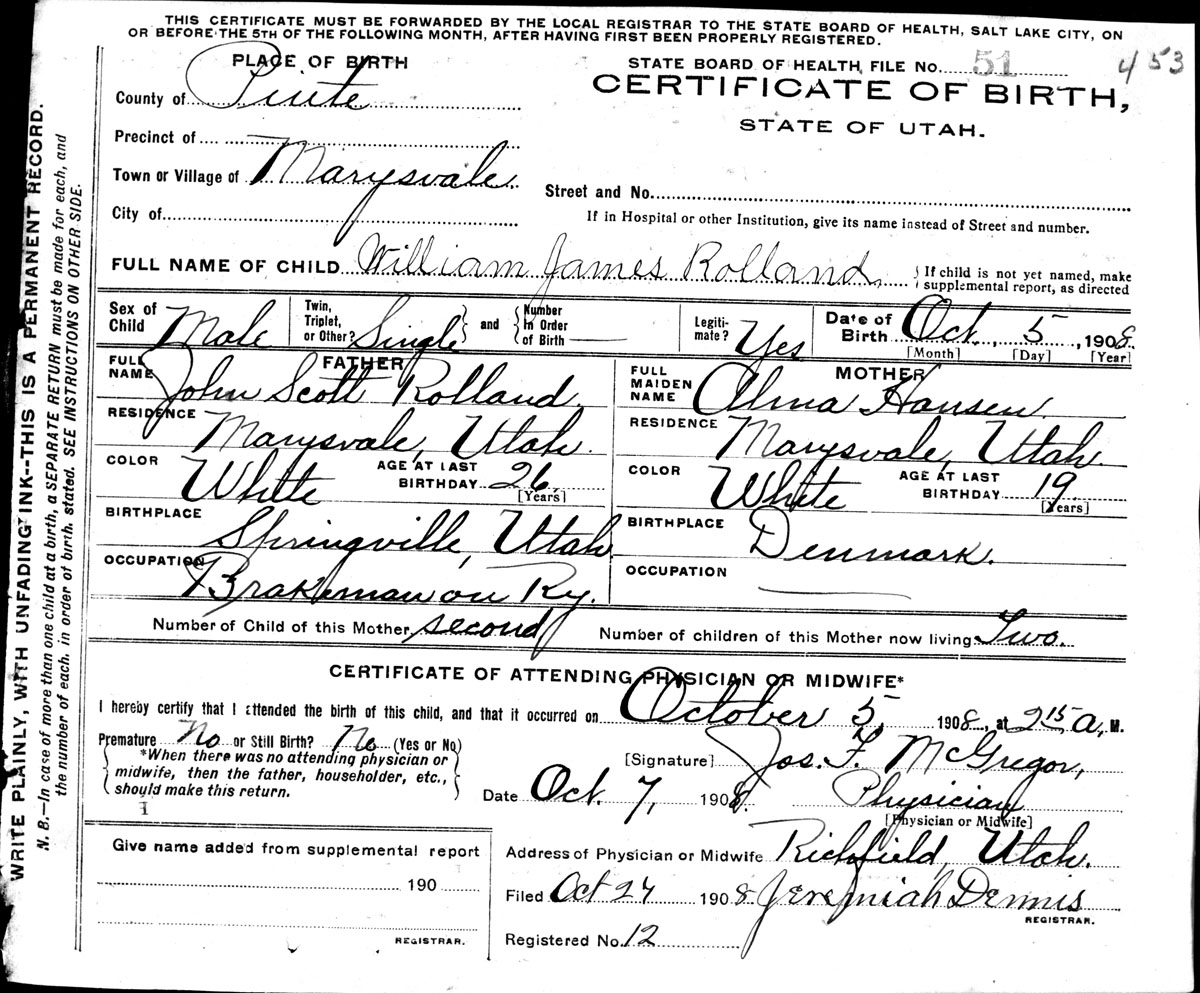 THIS CERTIFICATE MUST BE FORWARDED BY THE LOCAL REGISTRAR TO THE STATE BOARD OF HEALTH, SALT LAKE CITY, ON
OR BEFORE THE 5TH OF THE FOLLOWING MONTH, AFTER HAVING FIRST BEEN PROPERLY REGISTERED.
PLACE OF BIRTH
STATE BOARD OF HEALTH FILE No. 51
453
County of Piute
CERTIFICATE OF BIRTH,
STATE OF UTAH.
Precinct of
Town or Village of Marysvale
Street and No.
City of
If in Hospital or other Institution, give its name instead of Street and number.
FULL NAME OF CHILD William James Rolland
If child is not yet named, make
supplemental report, as directed
Sex of Child Male
Twin, Triplet, or Other? Single
and Number In Order of Birth —
Legiti-mate? Yes
Date of Birth Oct. 5, 1908.
[Month] [Day] [Year]
FATHER
FULL NAME John Scott Rolland
RESIDENCE Marysvale, Utah.
COLOR White AGE AT LAST BIRTHDAY 26
[Years]
BIRTHPLACE Springville, Utah
OCCUPATION Brakeman on Ry.
MOTHER
FULL MAIDEN NAME Alma Hansen
RESIDENCE Marysvale, Utah.
COLOR White AGE AT LAST BIRTHDAY 19.
[Years]
BIRTHPLACE Denmark.
OCCUPATION —
Number of Child of this Mother second Number of children of this Mother now living Two.
CERTIFICATE OF ATTENDING PHYSICIAN OR MIDWIFE*
I hereby certify that I attended the birth of this child, and that it occurred on October 5, 1908, at 2 15 a, M.
Premature No or Still Birth? No (Yes or No)
*When there was no attending physician or
midwife, then the father, householder, etc.,
should make this return.
[Signature] Jos. F. McGregor,
Date Oct. 7, 1908. Physician
[Physician or Midwife]
Give name added from supplemental report
190
REGISTRAR.
Address of Physician or Midwife Richfield, Utah.
Filed Oct 27 1908. Jeremiah Dennis
REGISTRAR.
Registered No. 12
WRITE PLAINLY, WITH UNFADING INK--THIS IS A PERMANENT RECORD.
N. B.—In case of more than one child at a birth, a SEPARATE RETURN must be made for each, and
the number of each, in order of birth, stated. SEE INSTRUCTIONS ON OTHER SIDE.